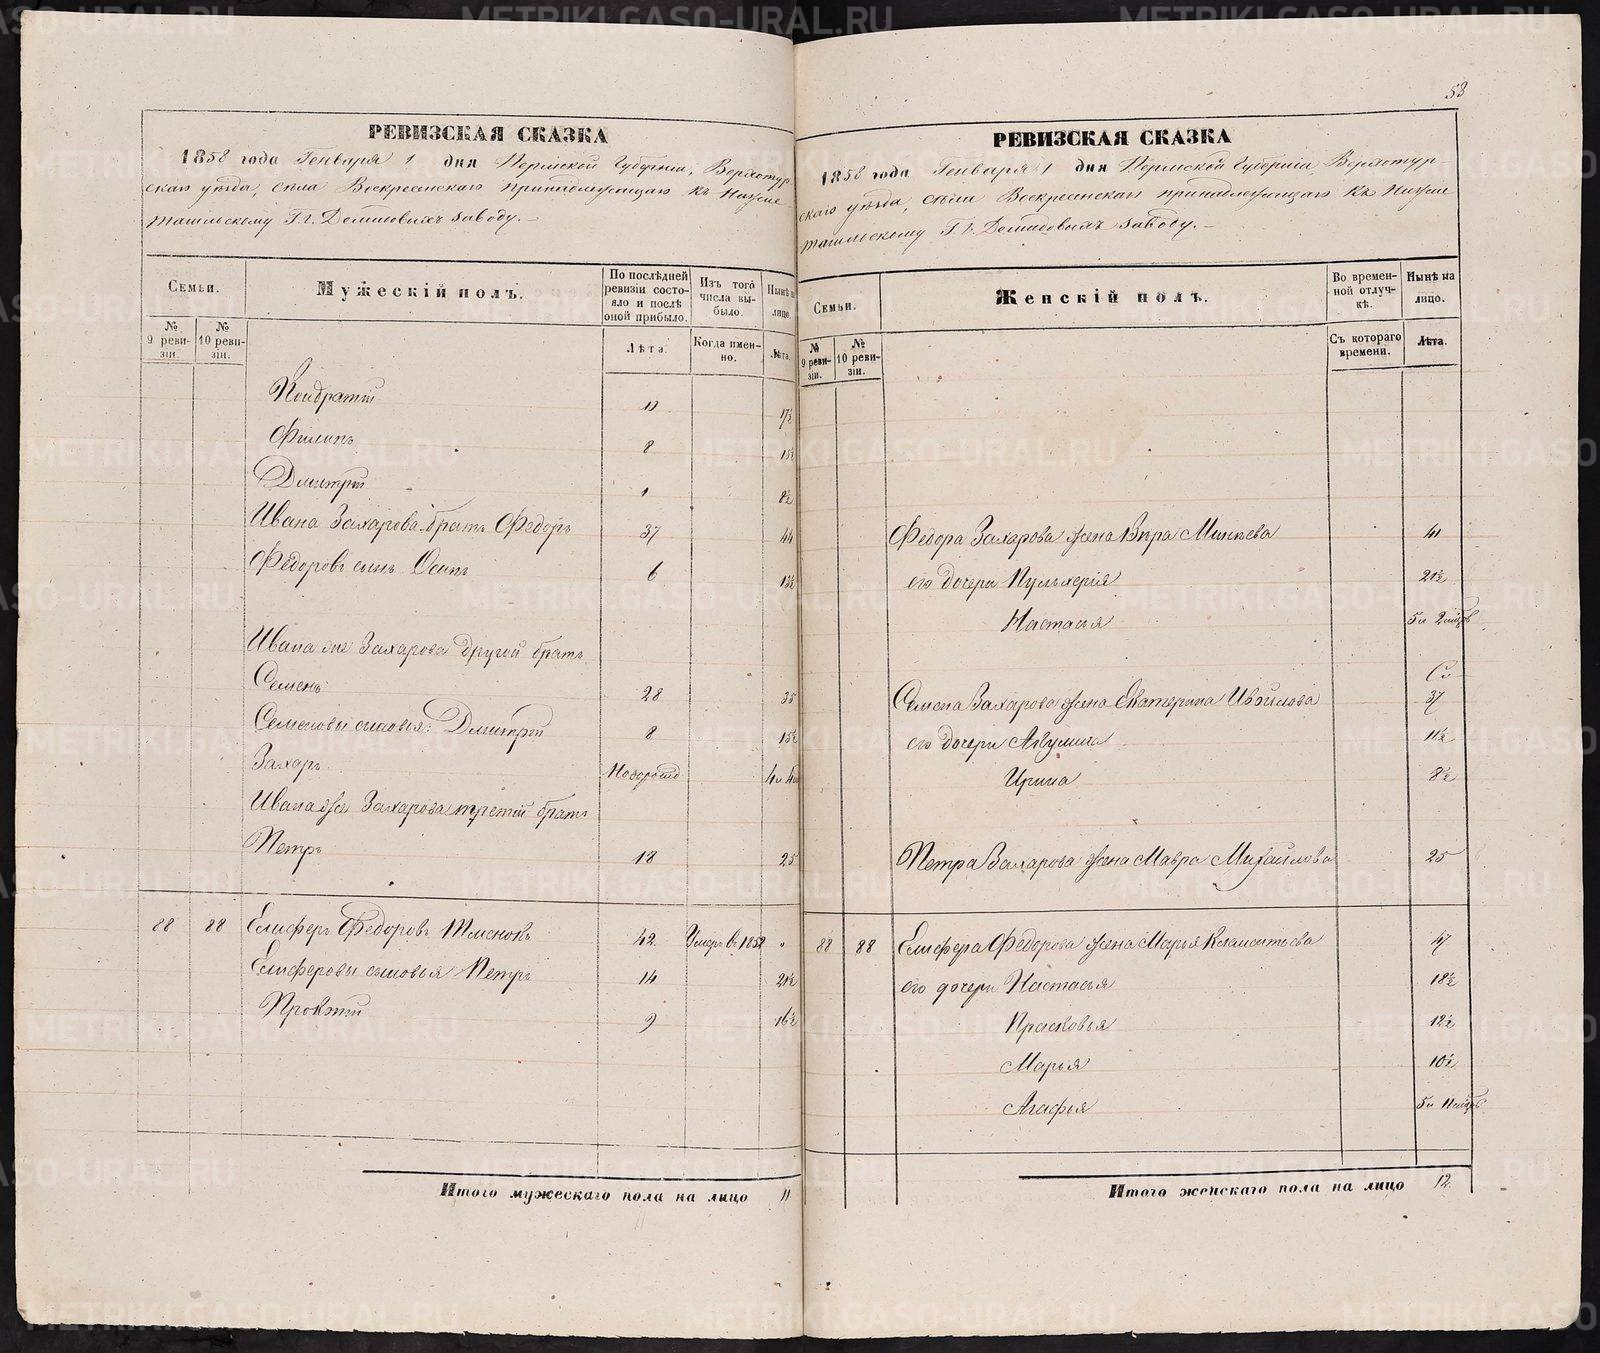 58
РЕВИЗСКАЯ СКАЗКА
1858 года Генваря 1 дня Пермской Губерніи, Верхотур
скаго уѣзда, села Воскресенскаго принадлежащаго къ Нижне
тагильскому Гг. Демидовыхъ заводу.
Семьи.
Мужескій полъ.
По послѣдней ревизіи состояло и послѣ оной прибыло.
Изъ того числа выбыло.
Нынѣ на лицо.
№ 9 ревизіи.
№ 10 ревизіи.
Лѣта.
Когда именно.
Лѣта.
Кондратій 10 17½
Филипъ 8 15½
Дмитрій 1 8½
Ивана Захарова братъ Федоръ 37 44
Федоровъ сынъ Осипъ 6 13½
Ивана же Захарова другой братъ
Семенъ 28 35
Семеновы сыновья: Дмитрій 8 15½
Захаръ Новорожд 4 и 4
Ивана же Захарова третій братъ
Петръ 18 25
88 88 Елиферъ Федоровъ 42 Умеръ въ 1852 "
Елиферовы сыновья Петръ 14 21½
Прокопій 9 16½
Итого мужескаго пола на лицо 11
РЕВИЗСКАЯ СКАЗКА
1858 года Генваря 1 дня Пермской Губерніи Верхотур-
скаго уѣзда, села Воскресенскаго принадлежащаго къ Нижне
тагильскому Гг. Демидовыхъ заводу.
Семьи.
Женскій полъ.
Во временной отлучкѣ.
Нынѣ на лицо.
№ 9 ревизіи.
№ 10 ревизіи.
Съ котораго времени.
Лѣта.
Федора Захарова жена Вѣра Минѣева 41
его дочери Пульхерія 21½
Настасья 5 и 2 мѣсяц
Семена Захарова жена Екатерина Ивойлова 37
его дочери Акулина 11½
Ирина 8½
Петра Захарова жена Мавра Михайлова 25
88 88 Елифера Федорова жена Марья Климентьева 47
его дочери Настасья 18½
Прасковья 12½
Марья 10½
Агафья 5 и 11 мѣсяц
Итого женскаго пола на лицо 12
METRIKI.GASO-URAL.RU